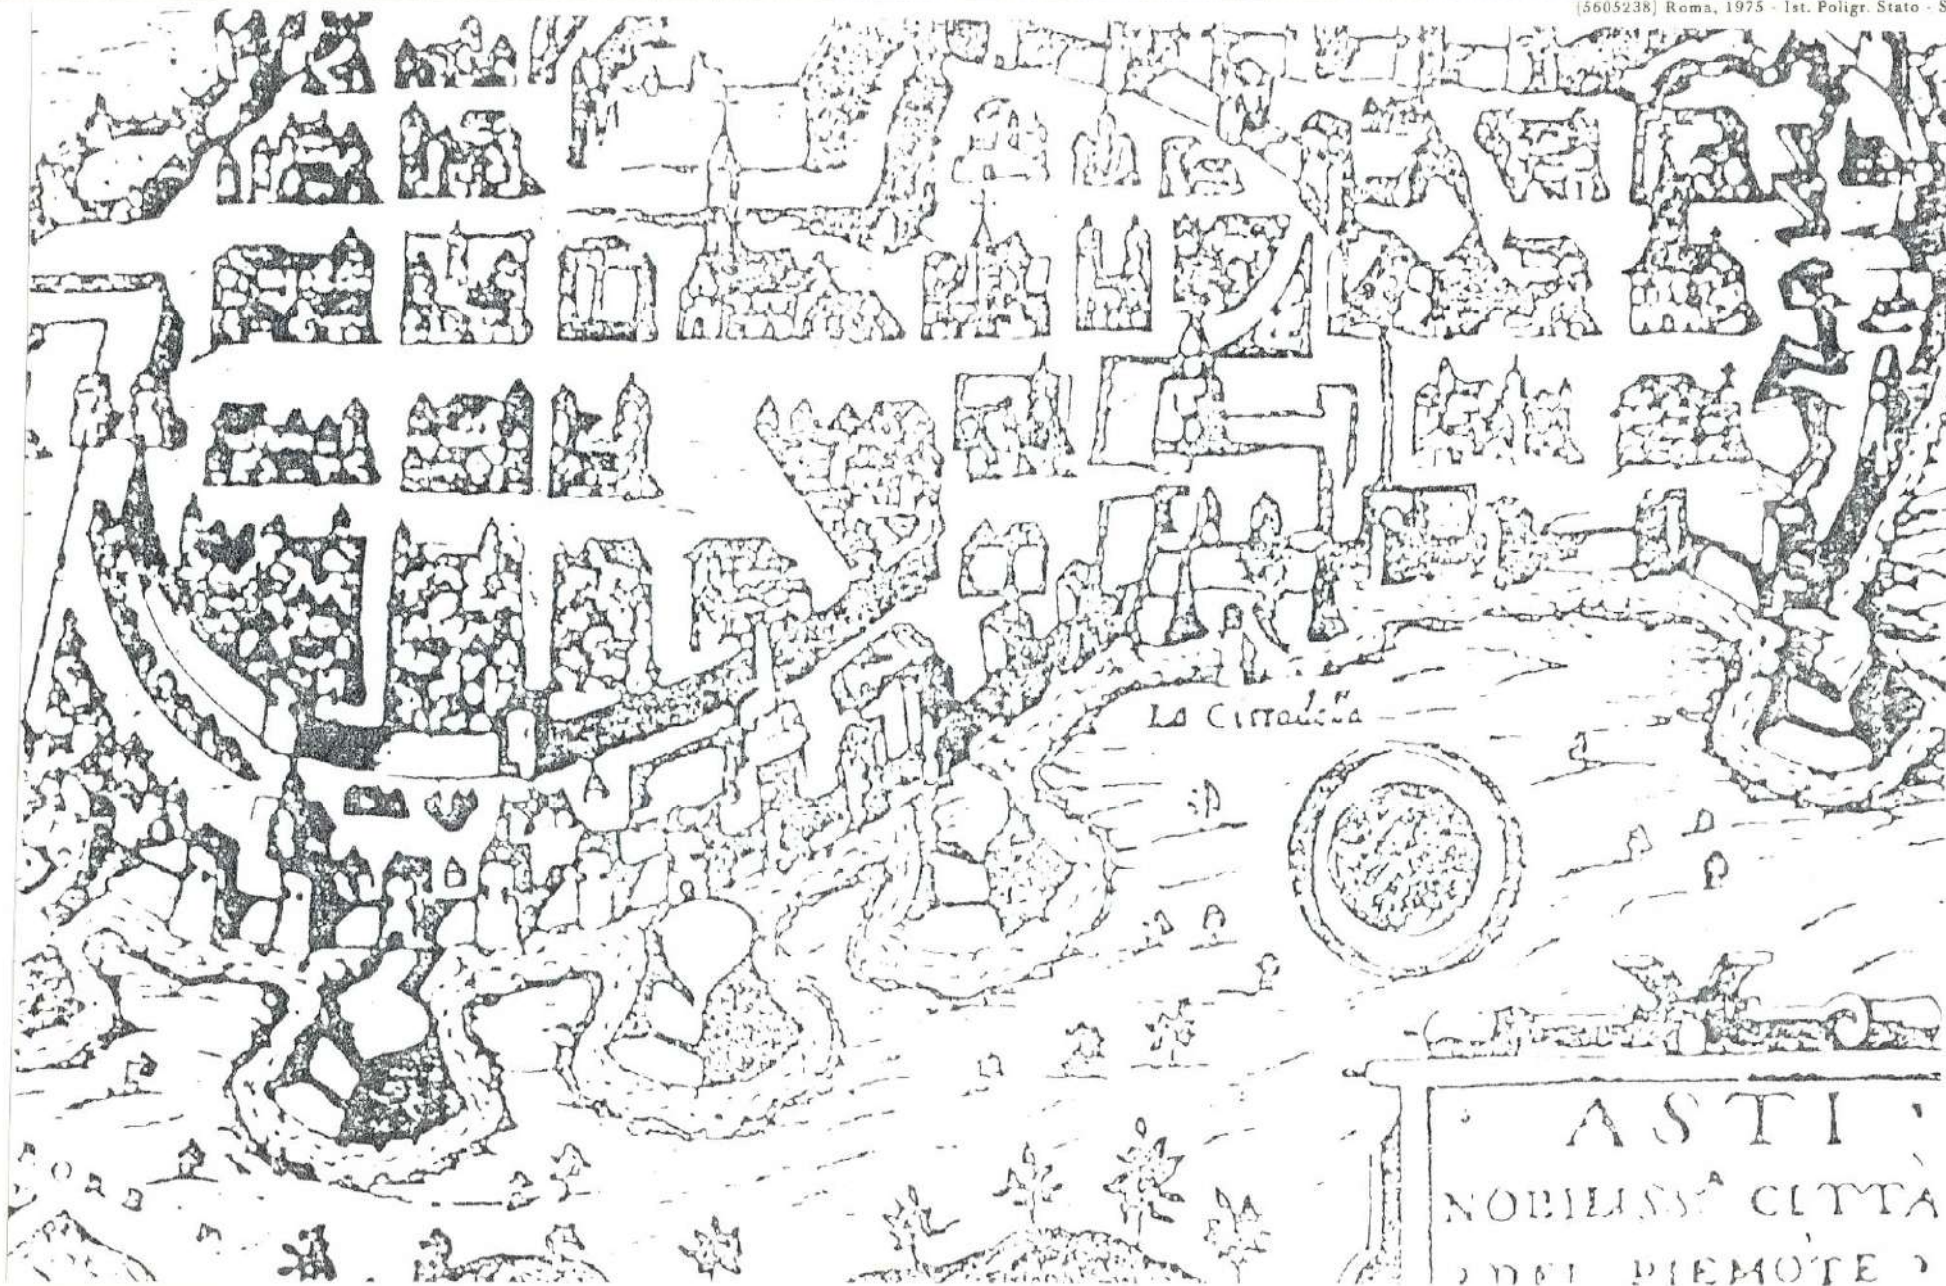 (5605238) Roma, 1975 - Ist. Poligr. Stato - S
La Cittadela
ASTI
NOBILISSᴬ CITTÀ
DEL PIEMOTE